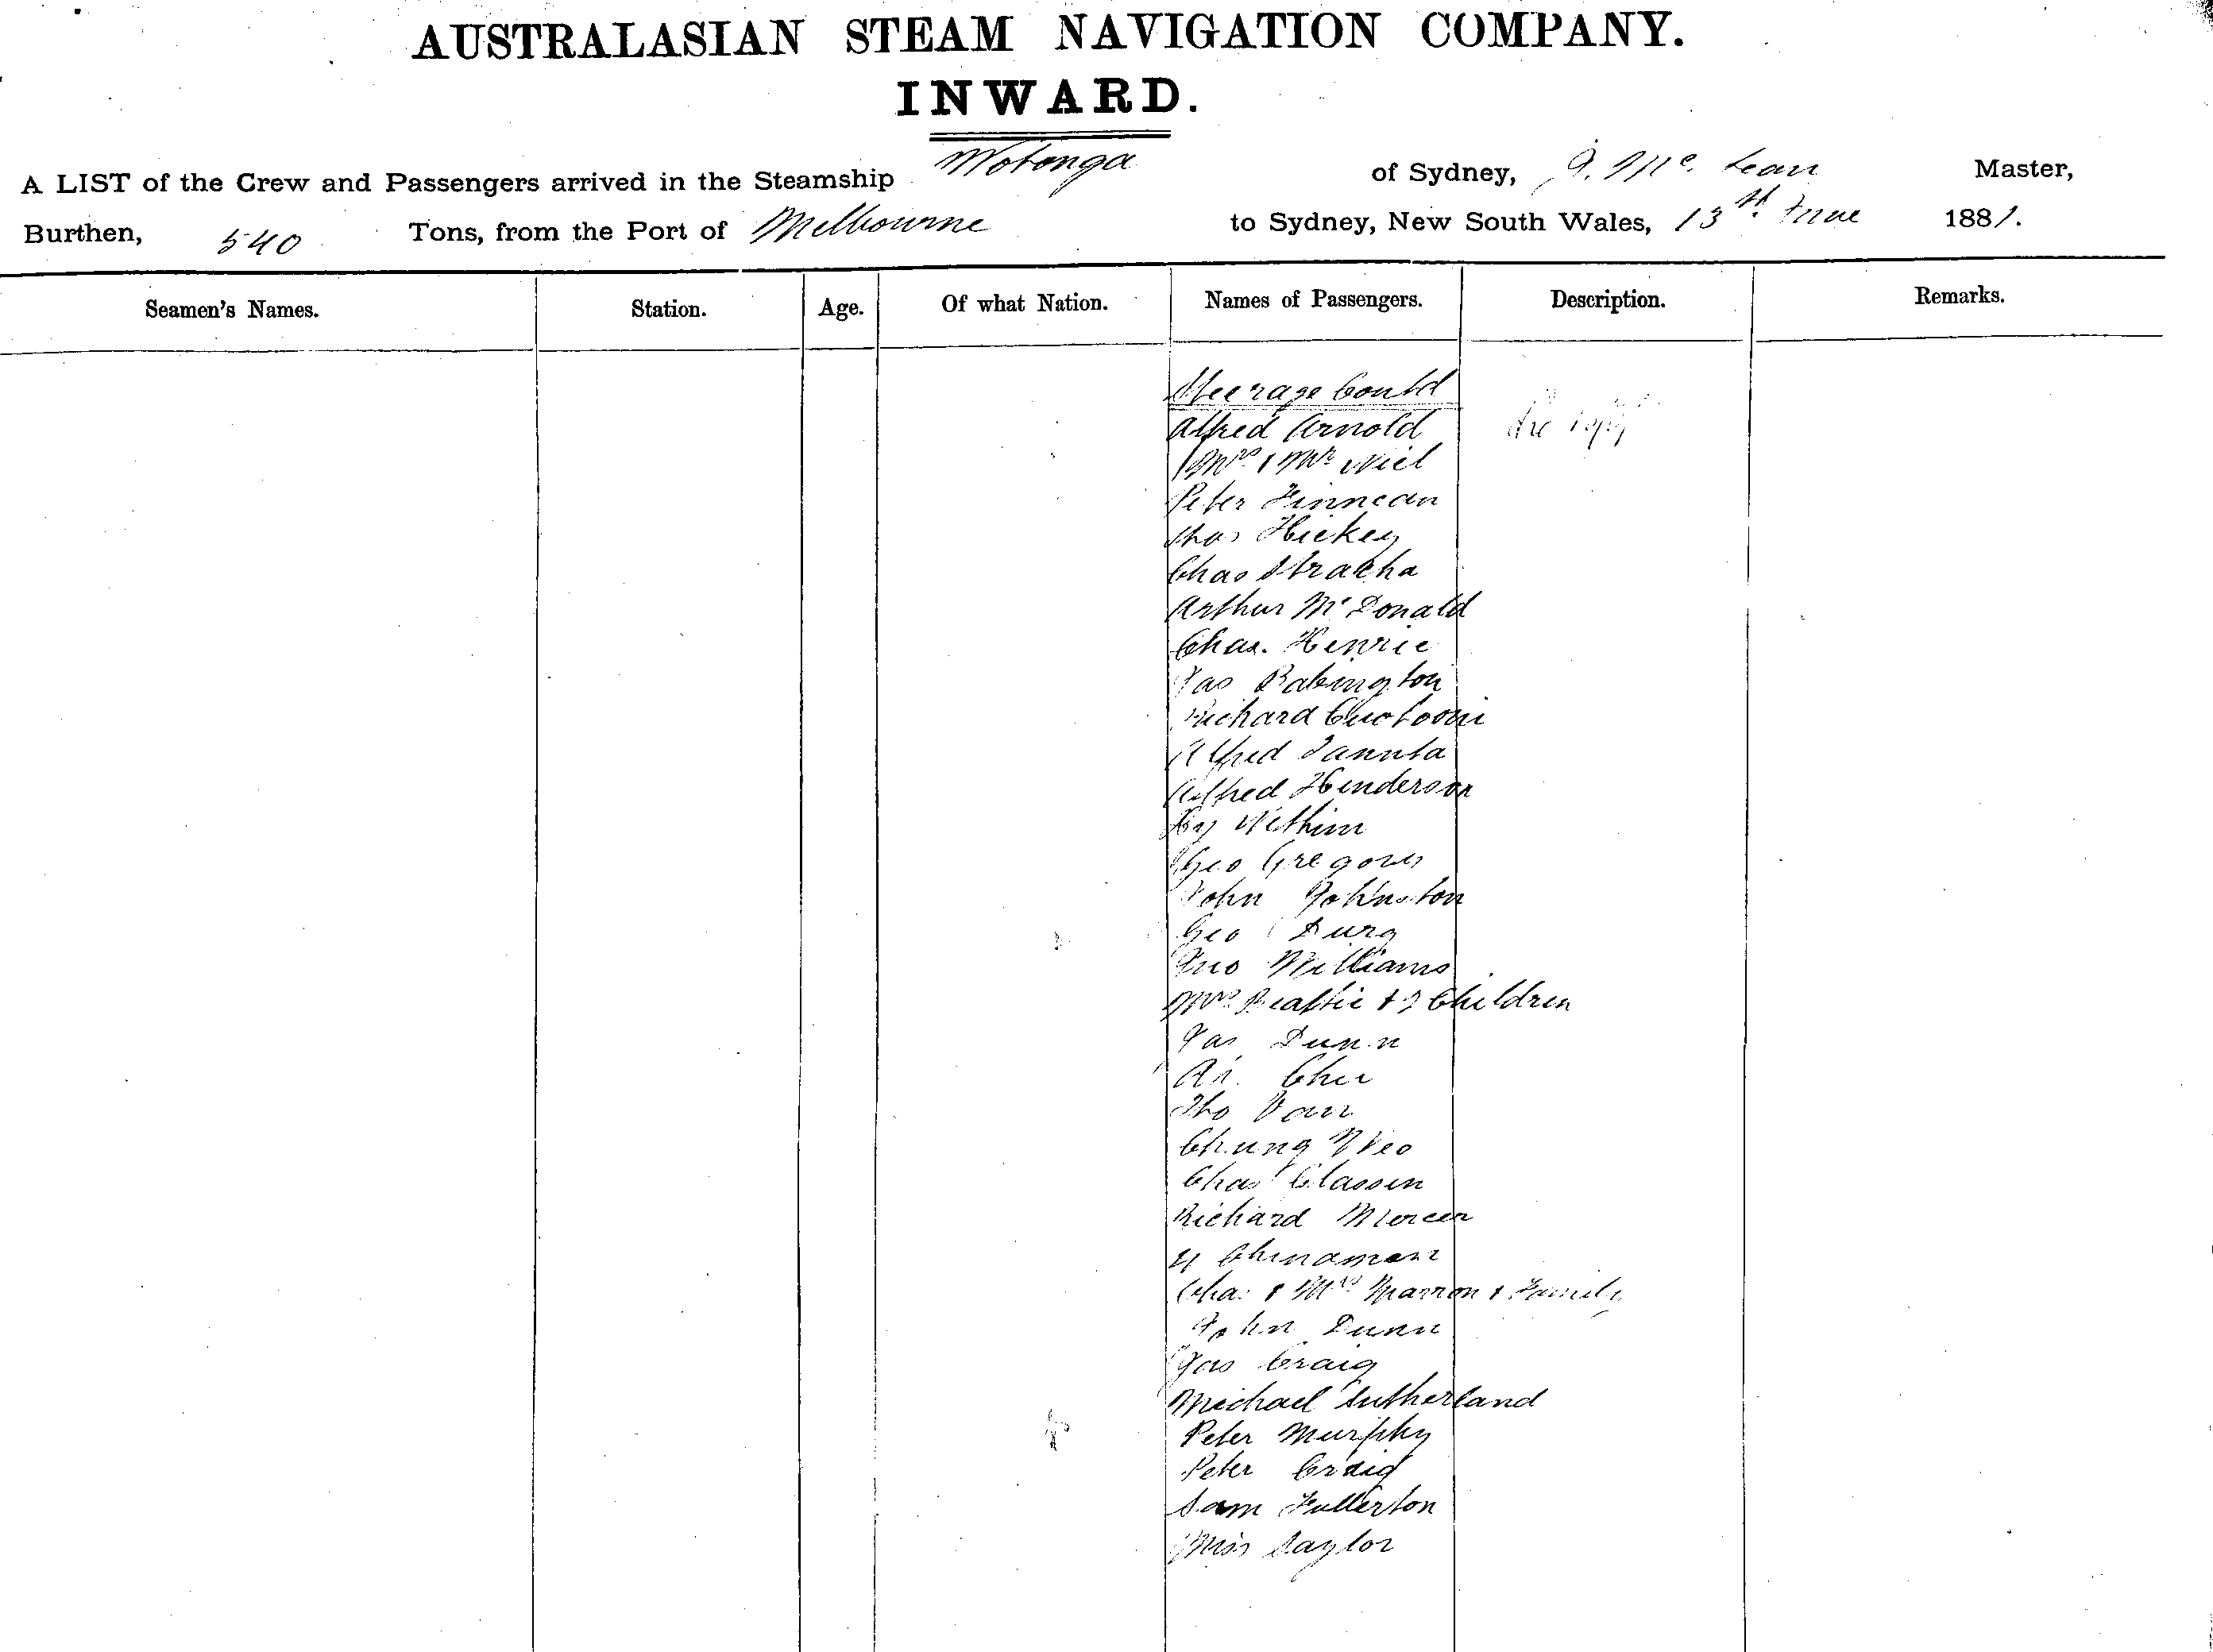 AUSTRALASIAN STEAM NAVIGATION COMPANY.
INWARD.
A LIST of the Crew and Passengers arrived in the Steamship Wotonga of Sydney, J. Mc. Lean Master,
Burthen, 540 Tons, from the Port of Melbourne to Sydney, New South Wales, 13th June 1881.
Seamen's Names. Station. Age. Of what Nation. Names of Passengers. Description. Remarks.
Steerage Contd
Alfred Arnold
Mrs & Mr Niel
Peter Finnean
Thos Hickey
Chas Stracha
Arthur Mc Donald
Chas. Henrie
Jas Babington
Richard
Alfred
Alfred Henderson
Hy
Geo Gregory
John Johnston
Geo
Jno Williams
Mrs Beattie & 3 Children
Jas Dunn
Ar. Chee
Tho
Chung
Chas Classen
Richard Mercer
4 Chinamen
Chas & Mrs Marron & Family
John Dunn
Jas Craig
Michael Sutherland
Peter Murphy
Peter Craig
Sam Fullerton
Miss Taylor